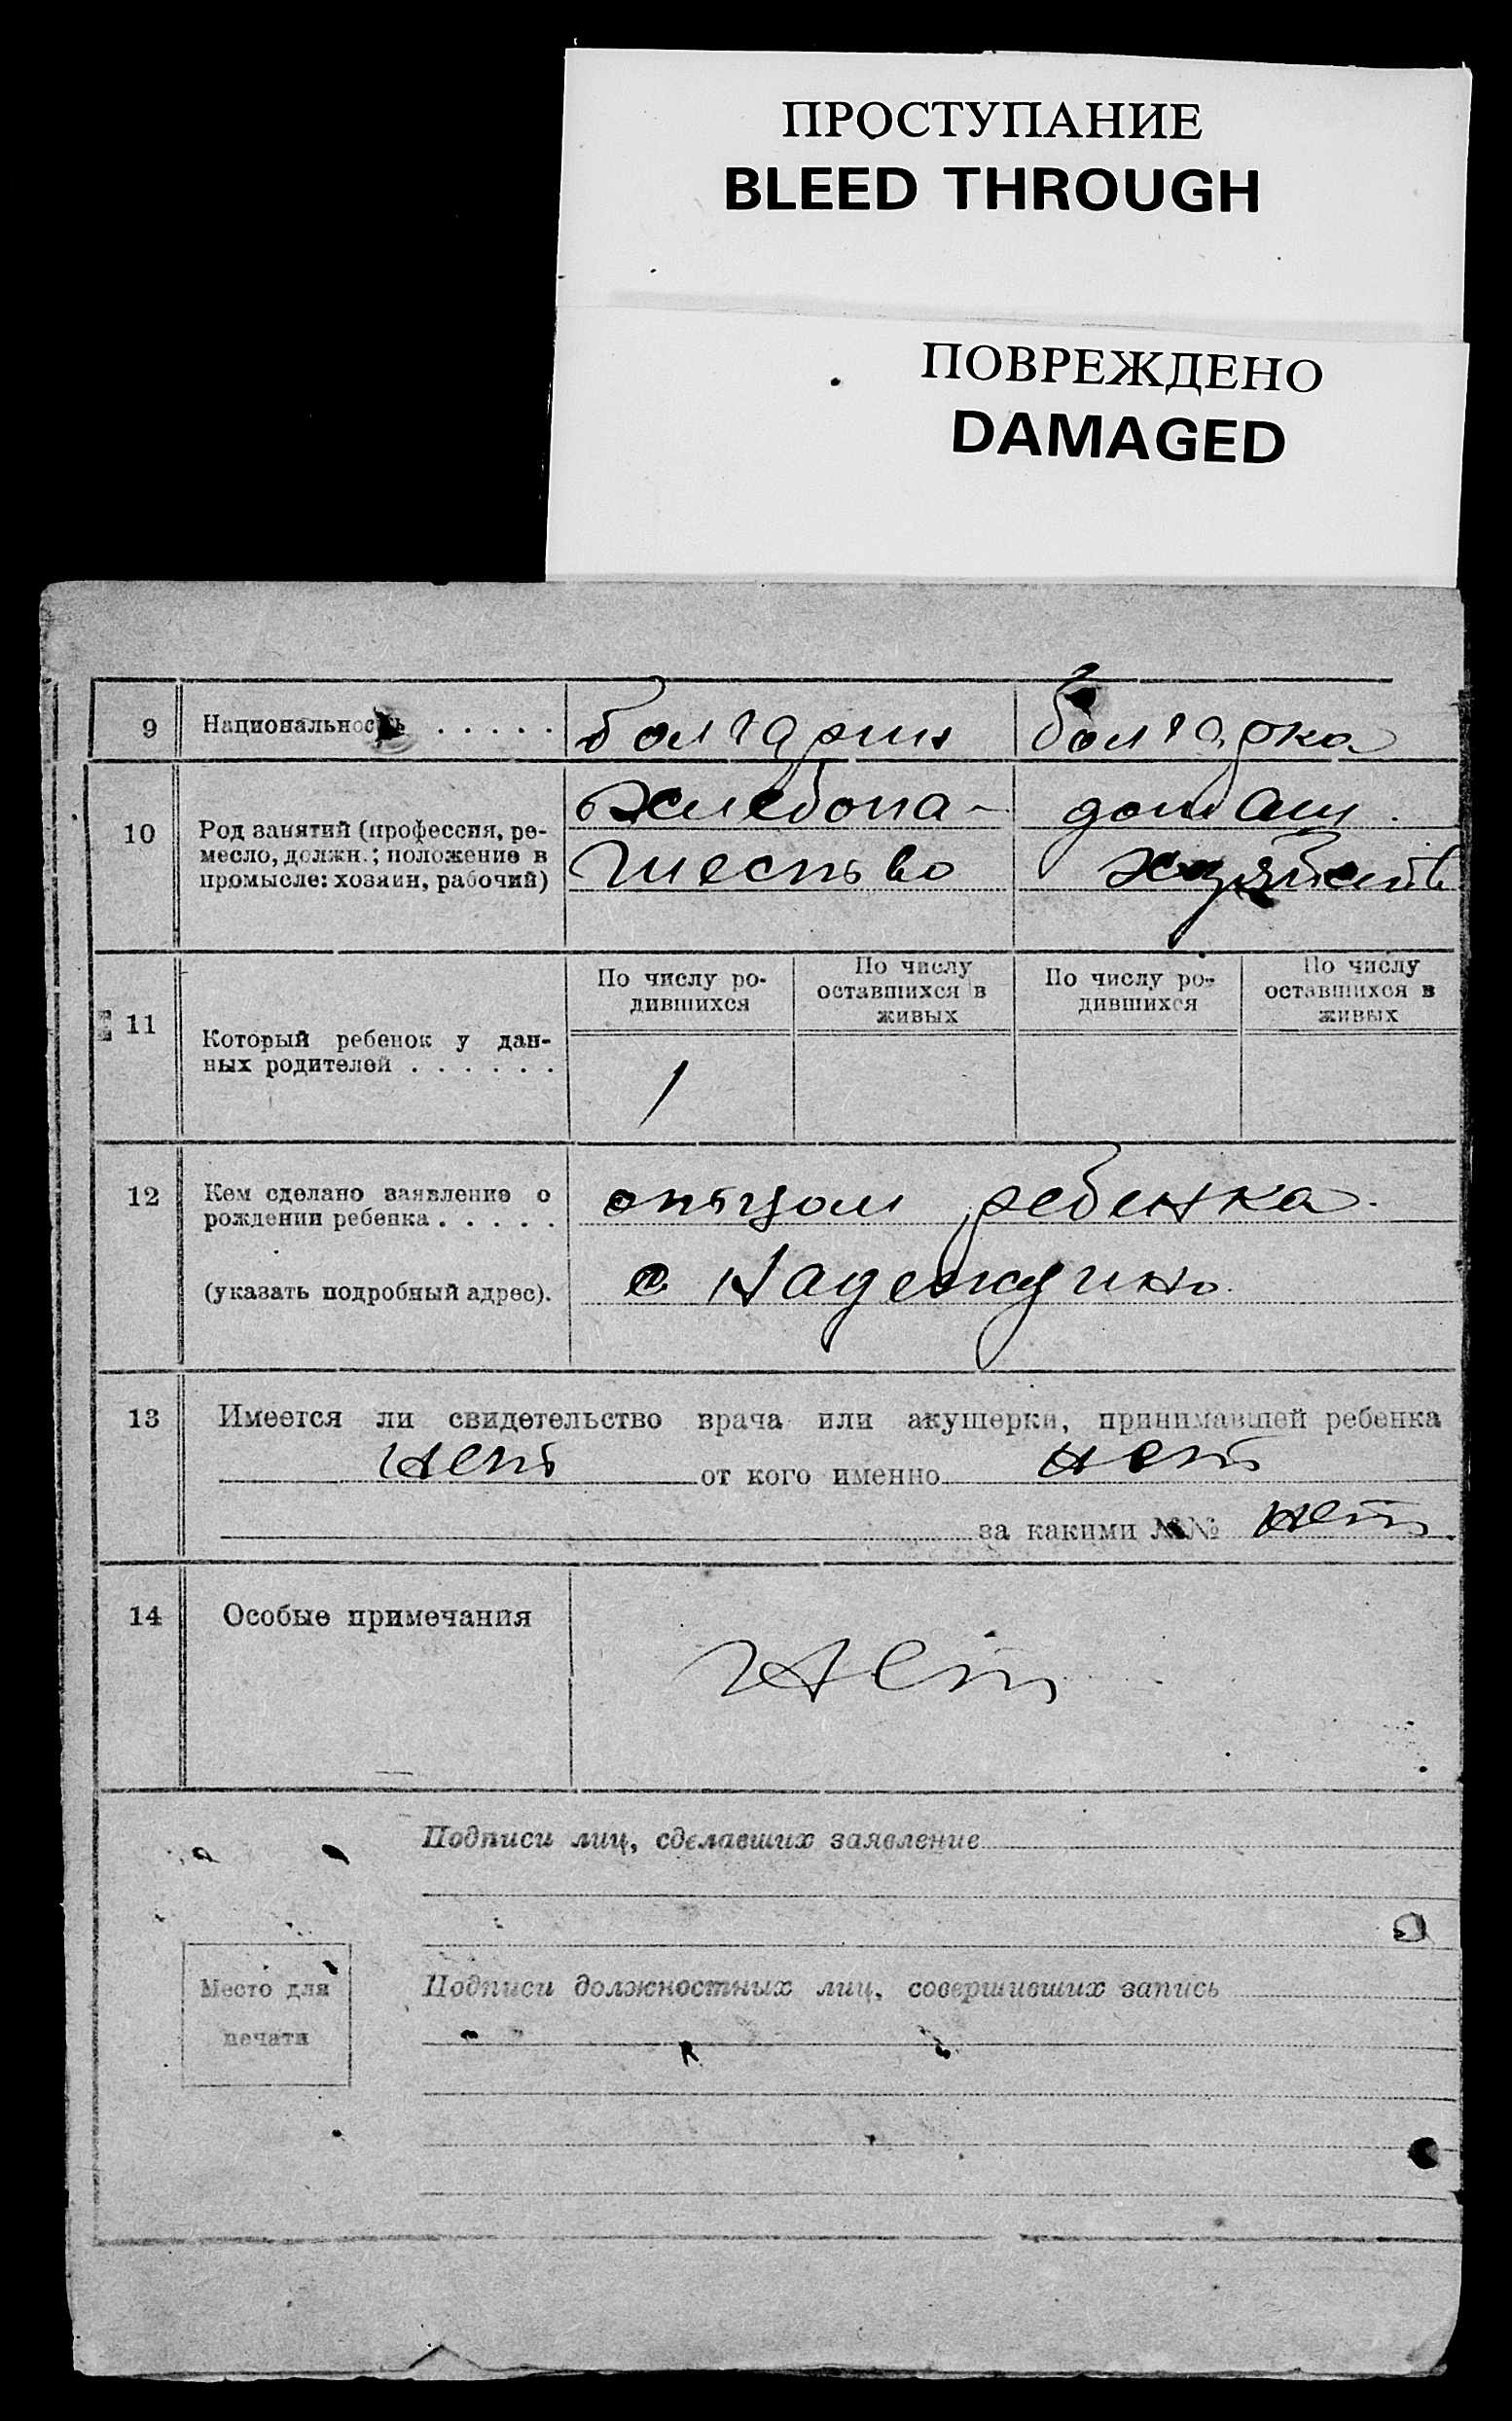 ПРОСТУПАНИЕ
BLEED THROUGH
ПОВРЕЖДЕНО
DAMAGED
9 Национальность . . . . . болгарин болгарка
10 Род занятий (профессия, ре-
месло, должн.; положение в
промысле: хозяин, рабочий)
хлебопа- домаш.
шество хозяйств
11 Который ребенок у дан-
ных родителей . . . . . .
По числу ро-
дившихся
По числу
оставшихся в
живых
По числу ро-
дившихся
По числу
оставшихся в
живых
1
12 Кем сделано заявление о
рождении ребенка . . . . .
(указать подробный адрес).
отцом ребенка.
с Надеждино.
13 Имеется ли свидетельство врача или акушерки, принимавшей ребенка
нет от кого именно нет
за какими №№ нет
14 Особые примечания нет
Подписи лиц, сделавших заявление
Место для
печати
Подписи должностных лиц, совершивших запись